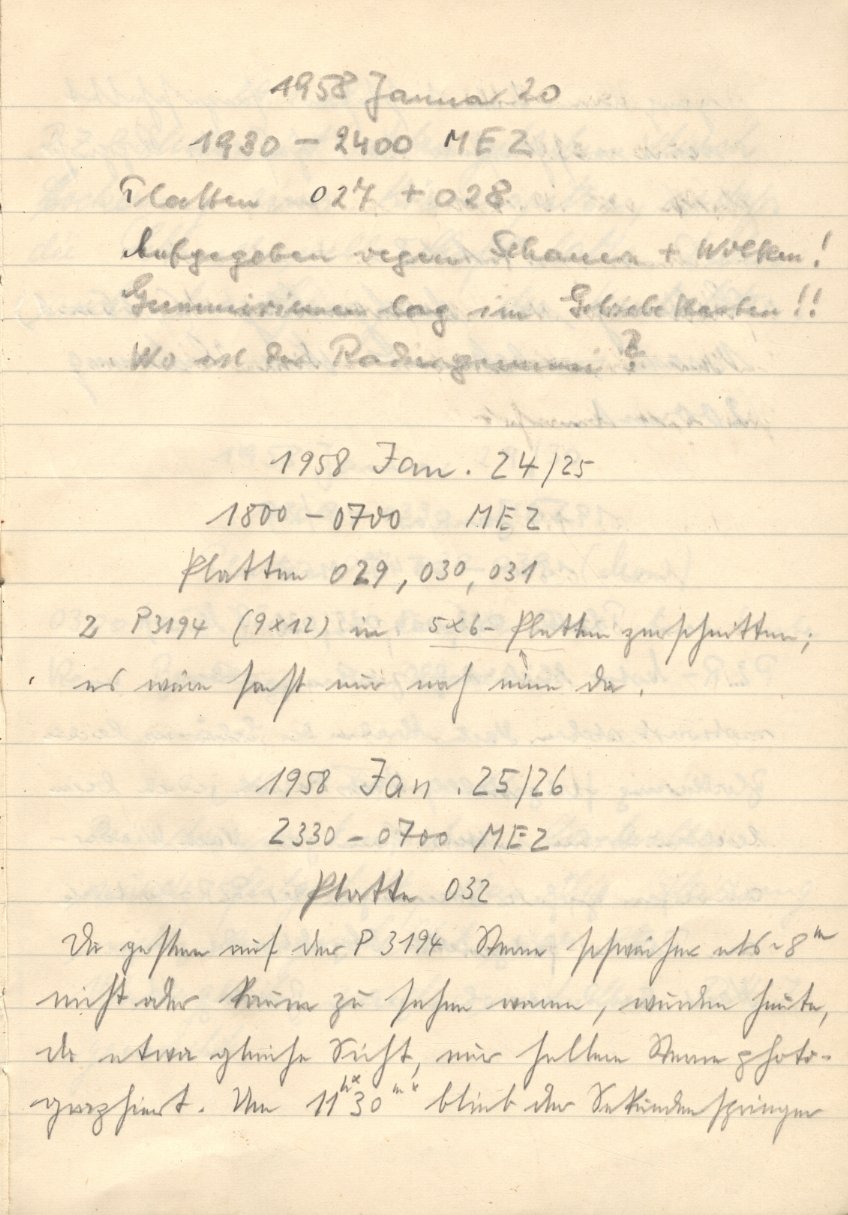 1958 Januar 20
1930 – 2400 MEZ
Platten 027 + 028
Aufgegeben wegen Schauern + Wolken!
Gummiriemen lag im Getriebekasten!!
Wo ist der Radiergummi?
1958 Jan. 24/25
1800 – 0700 MEZ
Platten 029, 030, 031
2 P3194 (9x12) in 5x6- Platten zerschnitten;
es wäre sonst nur noch eine da.
1958 Jan. 25/26
2330 – 0700 MEZ
Platte 032
Da gestern auf der P 3194 Sterne schwächer als ~8m
nicht oder kaum zu sehen waren, wurden heute,
da etwa gleiche Sicht, nur hellere Sterne photo-
graphiert. Um 11h30m blieb der Sekundenspringer